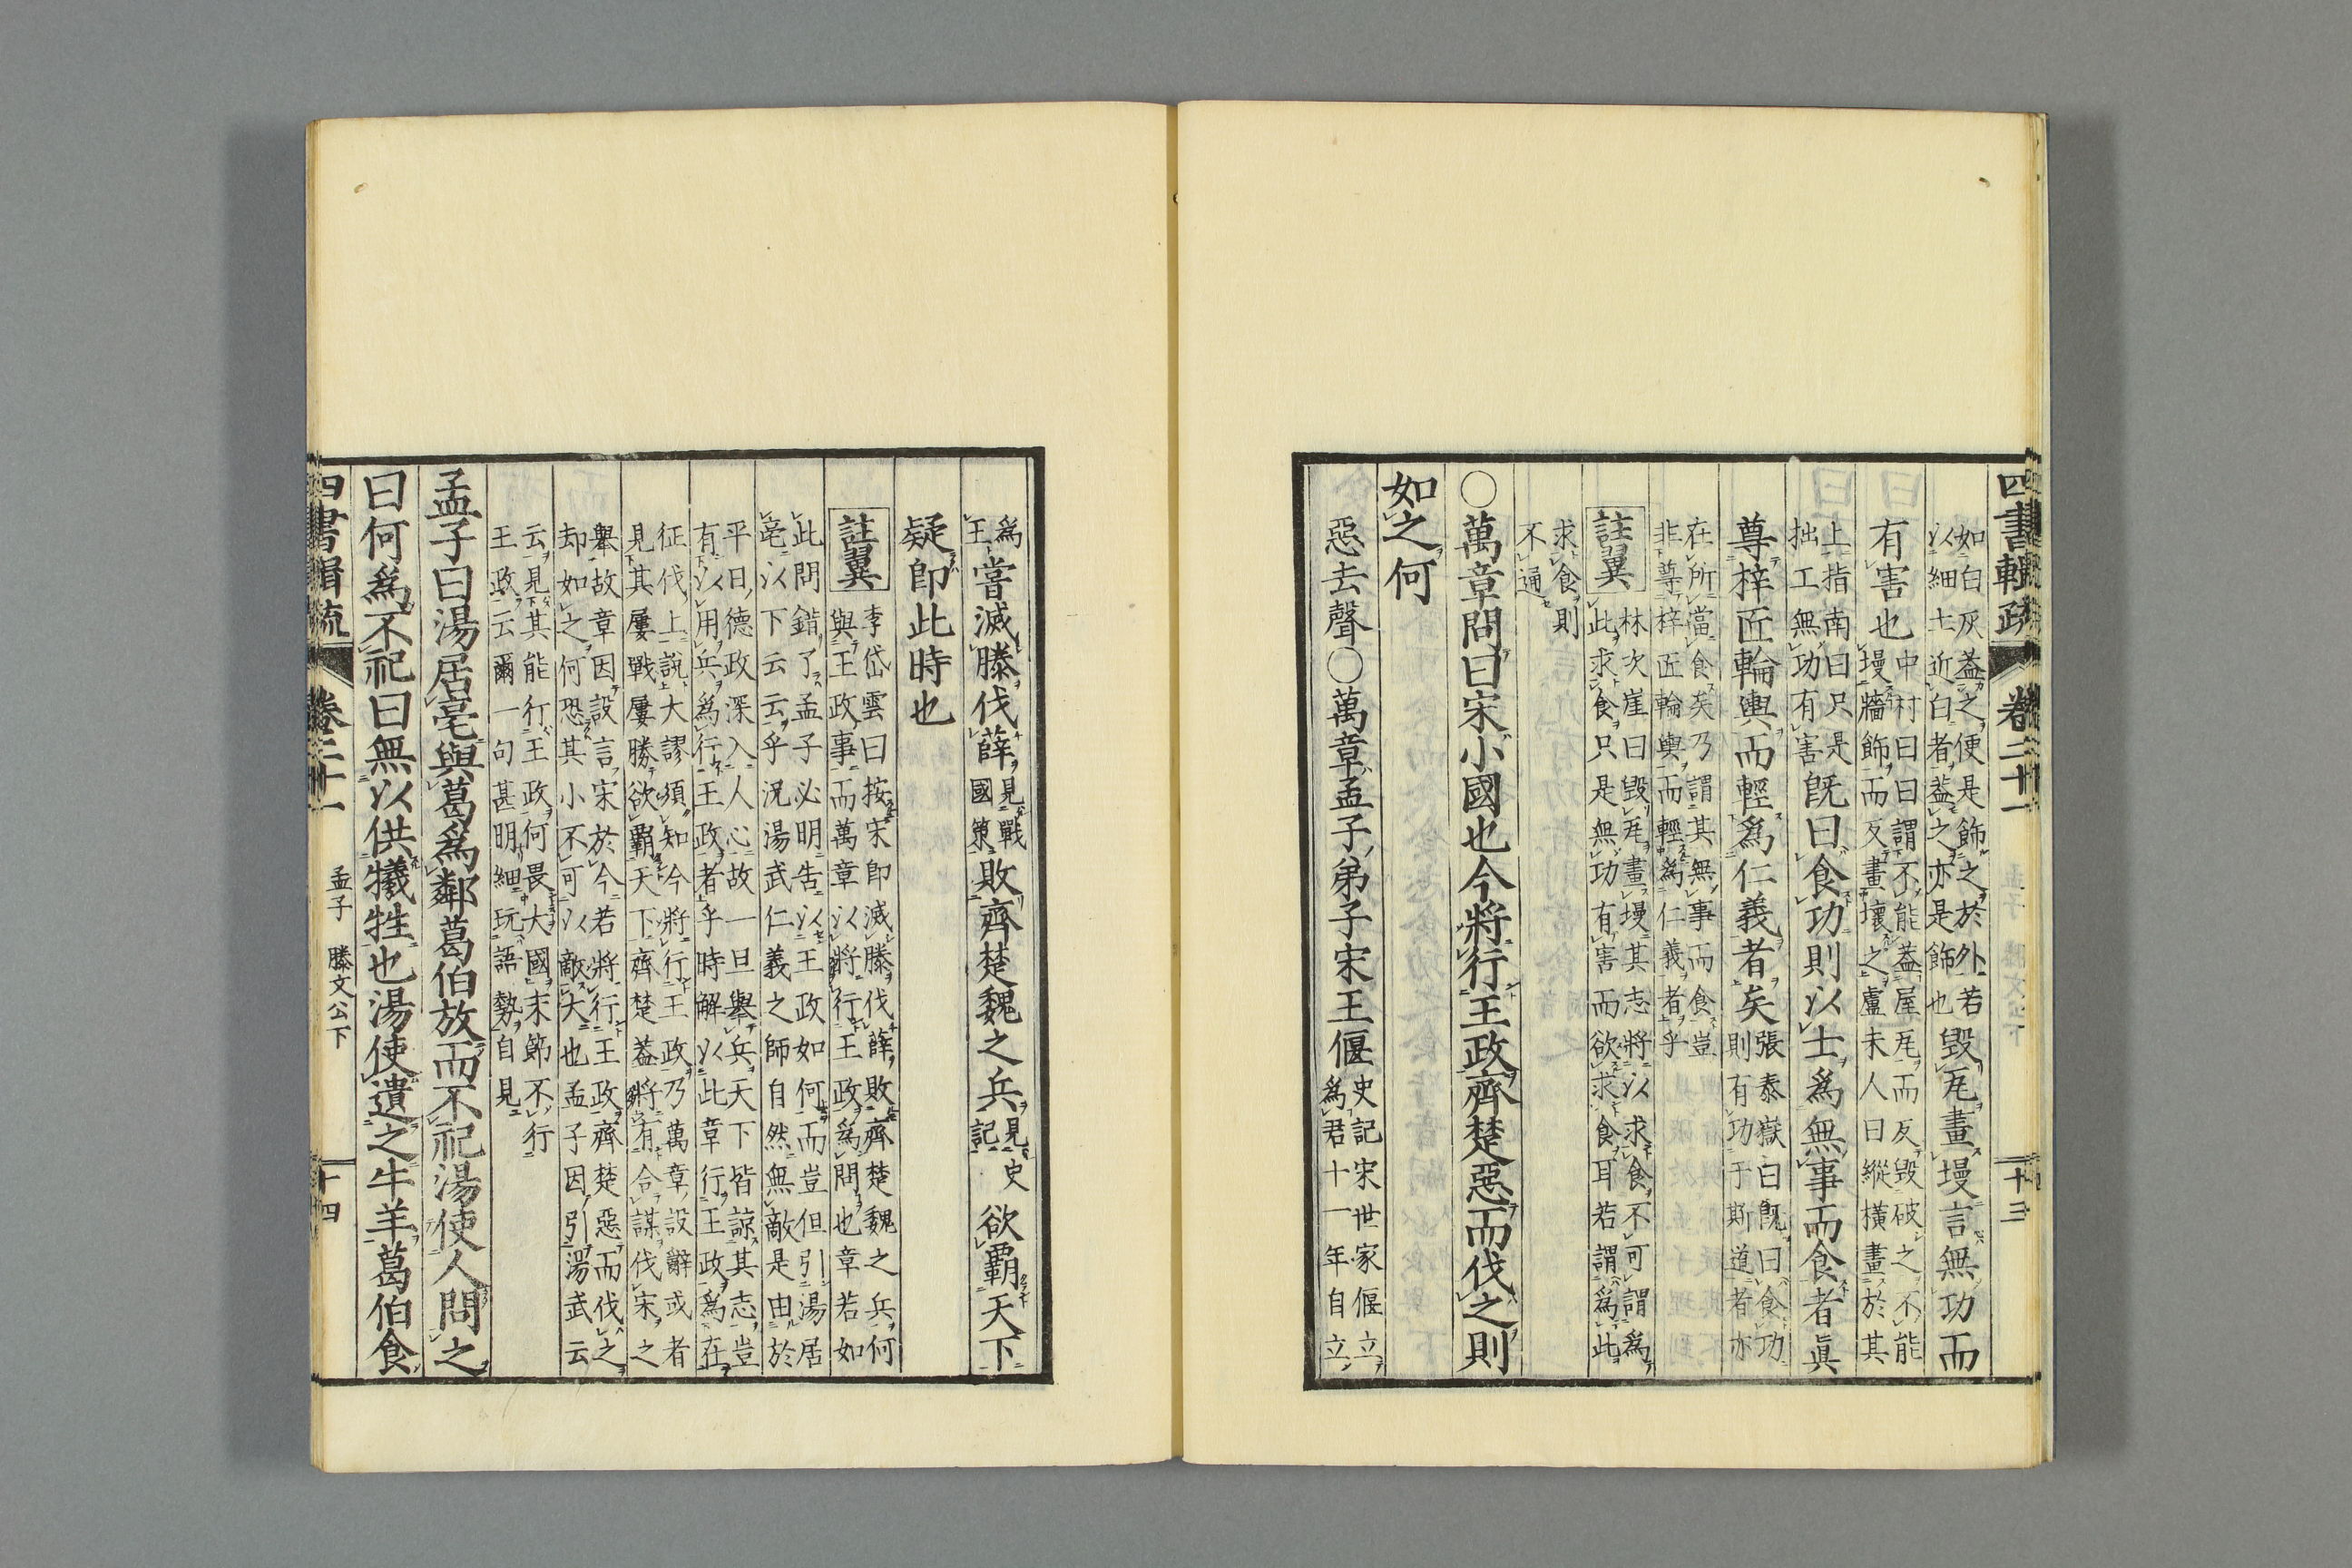 四書輯疏 卷二十一 十三
如白灰葢之便是飾之於外若
以細土近白者葢之亦是飾也
毀瓦畫墁言無功而
有害也
中村曰曰謂不能葢屋瓦而反毀破之不能
墁牆飾而反畫壞之盧未人曰縱橫畫於其
上指南曰只是
拙工無功有害
既曰食功則以士爲無事而食者眞
尊梓匠輪輿而輕爲仁義者矣
張泰嶽曰既曰食功
則有功于斯道者亦
在所當食矣乃謂其無事而食豈
非尊梓匠輪輿而輕爲仁義者乎
註翼
林次崖曰毀瓦畫墁其志將以求食不可謂爲
此求食只是無功有害而欲求食耳若謂爲此
求食則
不通
○萬章問曰宋小國也今將行王政齊楚惡而伐之則
如之何
惡去聲○萬章孟子弟子宋王偃
史記宋世家偃立
爲君十一年自立
爲
王
嘗滅滕伐薛
見戰
國策
敗齊楚魏之兵
見史
記
欲覇天下
疑卽此時也
註翼
李岱雲曰按宋卽滅滕伐薛敗齊楚魏之兵何
與王政事而萬章以將行王政爲問也章若如
此問錯了孟子必明告以王政如何而豈但引湯居
亳以下云云乎況湯武仁義之師自然無敵是由於
平日德政深入人心故一旦舉兵天下皆諒其志豈
有以用兵爲行王政者乎時解以此章行王政爲在
征伐上說大謬須知今將行王政乃萬章設辭或者
見其屢戰屢勝欲覇天下齊楚葢將有合謀伐宋之
舉故章因設言宋於今若將行王政齊楚惡而伐之
却如之何恐其小不可以敵大也孟子因引湯武云
云見其能行王政何畏大國末節不行
王政云爾一句甚明細玩語勢自見
孟子曰湯居亳與葛爲鄰葛伯放而不祀湯使人問之
曰何爲不祀曰無以供犧牲也湯使遺之牛羊葛伯食
四書輯疏 卷二十一 孟子 滕文公下 十四